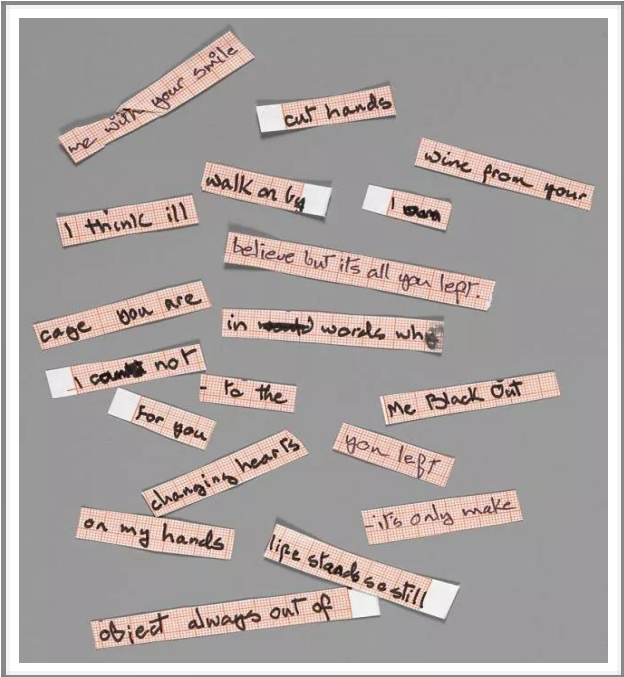 me with your smile
cut hands
wine from your
walk on by
I
I think ill
believe but its all you left.
cage you are
in words
I not
- to the
me Black Out
for you
you left
changing hearts
-it's only make
on my hands
life stands so still
object always out of